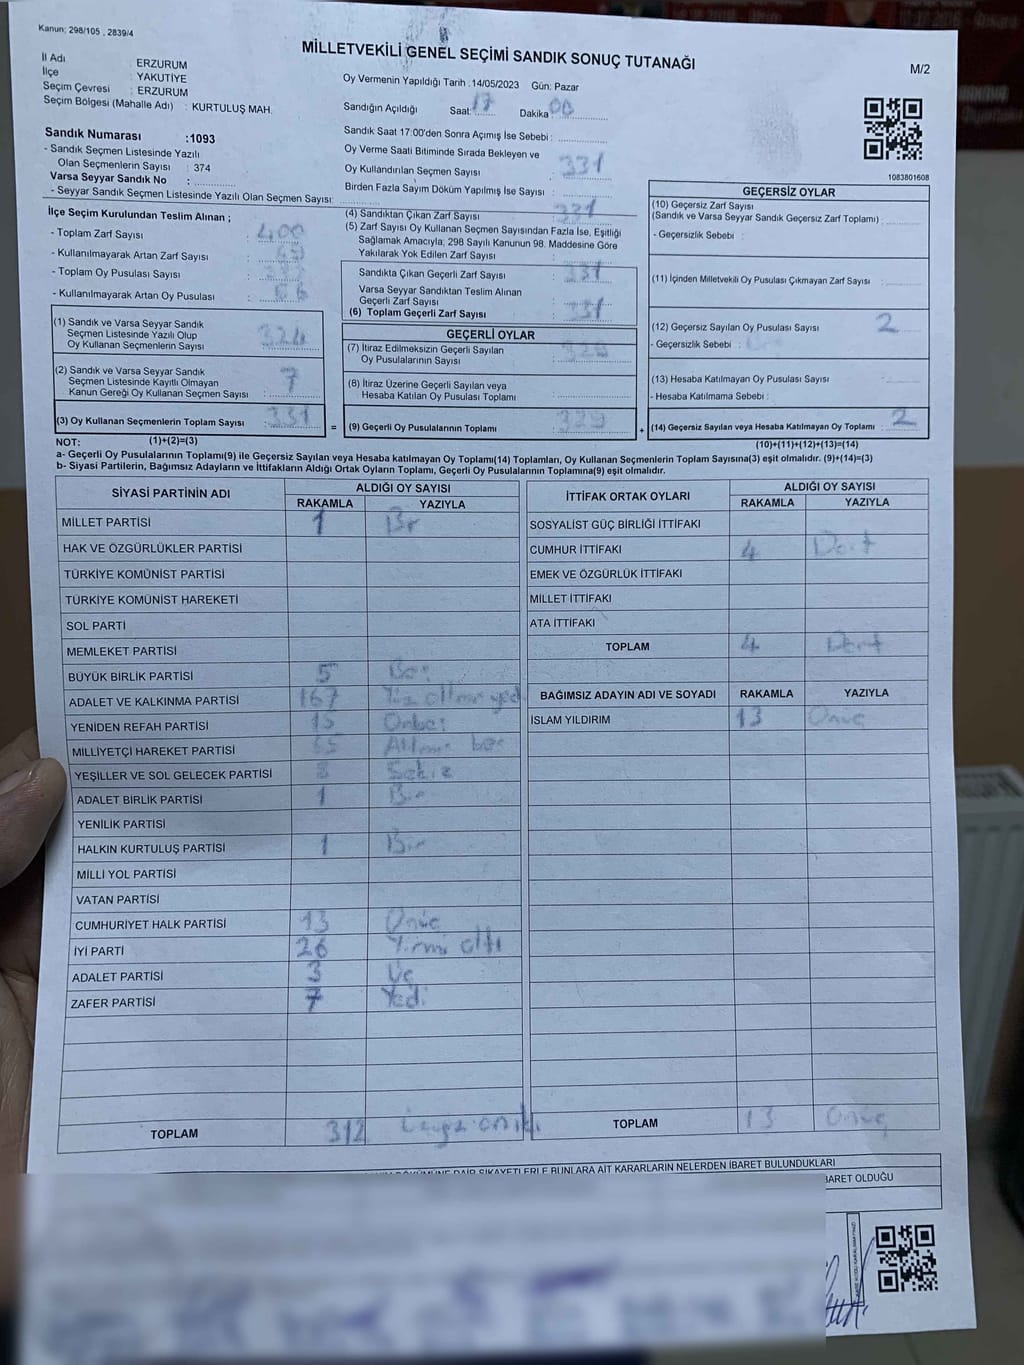 Kanun; 298/105 , 2839/4
MİLLETVEKİLİ GENEL SEÇİMİ SANDIK SONUÇ TUTANAĞI
M/2
İl Adı : ERZURUM
İlçe : YAKUTİYE
Seçim Çevresi : ERZURUM
Seçim Bölgesi (Mahalle Adı) : KURTULUŞ MAH.
Oy Vermenin Yapıldığı Tarih :14/05/2023 Gün: Pazar
Sandığın Açıldığı Saat: 17 Dakika 00
Sandık Saat 17:00'den Sonra Açımış İse Sebebi :
Oy Verme Saati Bitiminde Sırada Bekleyen ve
Oy Kullandırılan Seçmen Sayısı : 331
Birden Fazla Sayım Döküm Yapılmış İse Sayısı :
Sandık Numarası :1093
- Sandık Seçmen Listesinde Yazılı
Olan Seçmenlerin Sayısı : 374
Varsa Seyyar Sandık No :
- Seyyar Sandık Seçmen Listesinde Yazılı Olan Seçmen Sayısı:
1083801608
İlçe Seçim Kurulundan Teslim Alınan ;
- Toplam Zarf Sayısı : 400
- Kullanılmayarak Artan Zarf Sayısı :
- Toplam Oy Pusulası Sayısı :
- Kullanılmayarak Artan Oy Pusulası :
(1) Sandık ve Varsa Seyyar Sandık
Seçmen Listesinde Yazılı Olup
Oy Kullanan Seçmenlerin Sayısı : 324
(2) Sandık ve Varsa Seyyar Sandık
Seçmen Listesinde Kayıtlı Olmayan
Kanun Gereği Oy Kullanan Seçmen Sayısı : 7
(3) Oy Kullanan Seçmenlerin Toplam Sayısı : 331
(4) Sandıktan Çıkan Zarf Sayısı : 331
(5) Zarf Sayısı Oy Kullanan Seçmen Sayısından Fazla İse, Eşitliği
Sağlamak Amacıyla; 298 Sayılı Kanunun 98. Maddesine Göre
Yakılarak Yok Edilen Zarf Sayısı :
Sandıkta Çıkan Geçerli Zarf Sayısı : 331
Varsa Seyyar Sandıktan Teslim Alınan
Geçerli Zarf Sayısı :
(6) Toplam Geçerli Zarf Sayısı : 331
GEÇERLİ OYLAR
(7) İtiraz Edilmeksizin Geçerli Sayılan
Oy Pusulalarının Sayısı : 329
(8) İtiraz Üzerine Geçerli Sayılan veya
Hesaba Katılan Oy Pusulası Toplamı :
= (9) Geçerli Oy Pusulalarının Toplamı : 329 +
GEÇERSİZ OYLAR
(10) Geçersiz Zarf Sayısı
(Sandık ve Varsa Seyyar Sandık Geçersiz Zarf Toplamı) :
- Geçersizlik Sebebi :
(11) İçinden Milletvekili Oy Pusulası Çıkmayan Zarf Sayısı :
(12) Geçersiz Sayılan Oy Pusulası Sayısı : 2
- Geçersizlik Sebebi :
(13) Hesaba Katılmayan Oy Pusulası Sayısı :
- Hesaba Katılmama Sebebi :
(14) Geçersiz Sayılan veya Hesaba Katılmayan Oy Toplamı : 2
NOT: (1)+(2)=(3)
(10)+(11)+(12)+(13)=(14)
a- Geçerli Oy Pusulalarının Toplamı(9) ile Geçersiz Sayılan veya Hesaba katılmayan Oy Toplamı(14) Toplamları, Oy Kullanan Seçmenlerin Toplam Sayısına(3) eşit olmalıdır. (9)+(14)=(3)
b- Siyasi Partilerin, Bağımsız Adayların ve İttifakların Aldığı Ortak Oyların Toplamı, Geçerli Oy Pusulalarının Toplamına(9) eşit olmalıdır.
SİYASİ PARTİNİN ADI ALDIĞI OY SAYISI
RAKAMLA YAZIYLA
MİLLET PARTİSİ 1 Bir
HAK VE ÖZGÜRLÜKLER PARTİSİ
TÜRKİYE KOMÜNİST PARTİSİ
TÜRKİYE KOMÜNİST HAREKETİ
SOL PARTİ
MEMLEKET PARTİSİ
BÜYÜK BİRLİK PARTİSİ 5 Beş
ADALET VE KALKINMA PARTİSİ 167 Yüz altmış yedi
YENİDEN REFAH PARTİSİ 15 Onbeş
MİLLİYETÇİ HAREKET PARTİSİ 65 Altmış beş
YEŞİLLER VE SOL GELECEK PARTİSİ 8 Sekiz
ADALET BİRLİK PARTİSİ 1 Bir
YENİLİK PARTİSİ
HALKIN KURTULUŞ PARTİSİ 1 Bir
MİLLİ YOL PARTİSİ
VATAN PARTİSİ
CUMHURİYET HALK PARTİSİ 13 Onüç
İYİ PARTİ 26 Yirmi altı
ADALET PARTİSİ 3 Üç
ZAFER PARTİSİ 7 Yedi
TOPLAM 312 Üçyüz oniki
İTTİFAK ORTAK OYLARI ALDIĞI OY SAYISI
RAKAMLA YAZIYLA
SOSYALİST GÜÇ BİRLİĞİ İTTİFAKI
CUMHUR İTTİFAKI 4 Dört
EMEK VE ÖZGÜRLÜK İTTİFAKI
MİLLET İTTİFAKI
ATA İTTİFAKI
TOPLAM 4 Dört
BAĞIMSIZ ADAYIN ADI VE SOYADI RAKAMLA YAZIYLA
İSLAM YILDIRIM 13 Onüç
TOPLAM 13 Onüç
DAİR ŞİKAYETLERLE BUNLARA AİT KARARLARIN NELERDEN İBARET BULUNDUKLARI
BARET OLDUĞU